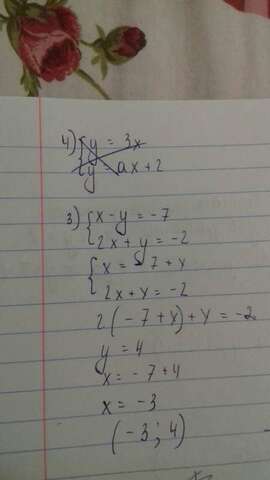 4) { y = 3x
y = ax + 2
3) { x - y = -7
2x + y = -2
{ x = -7 + y
2x + y = -2
2(-7 + y) + y = -2
y = 4
x = -7 + 4
x = -3
(-3; 4)